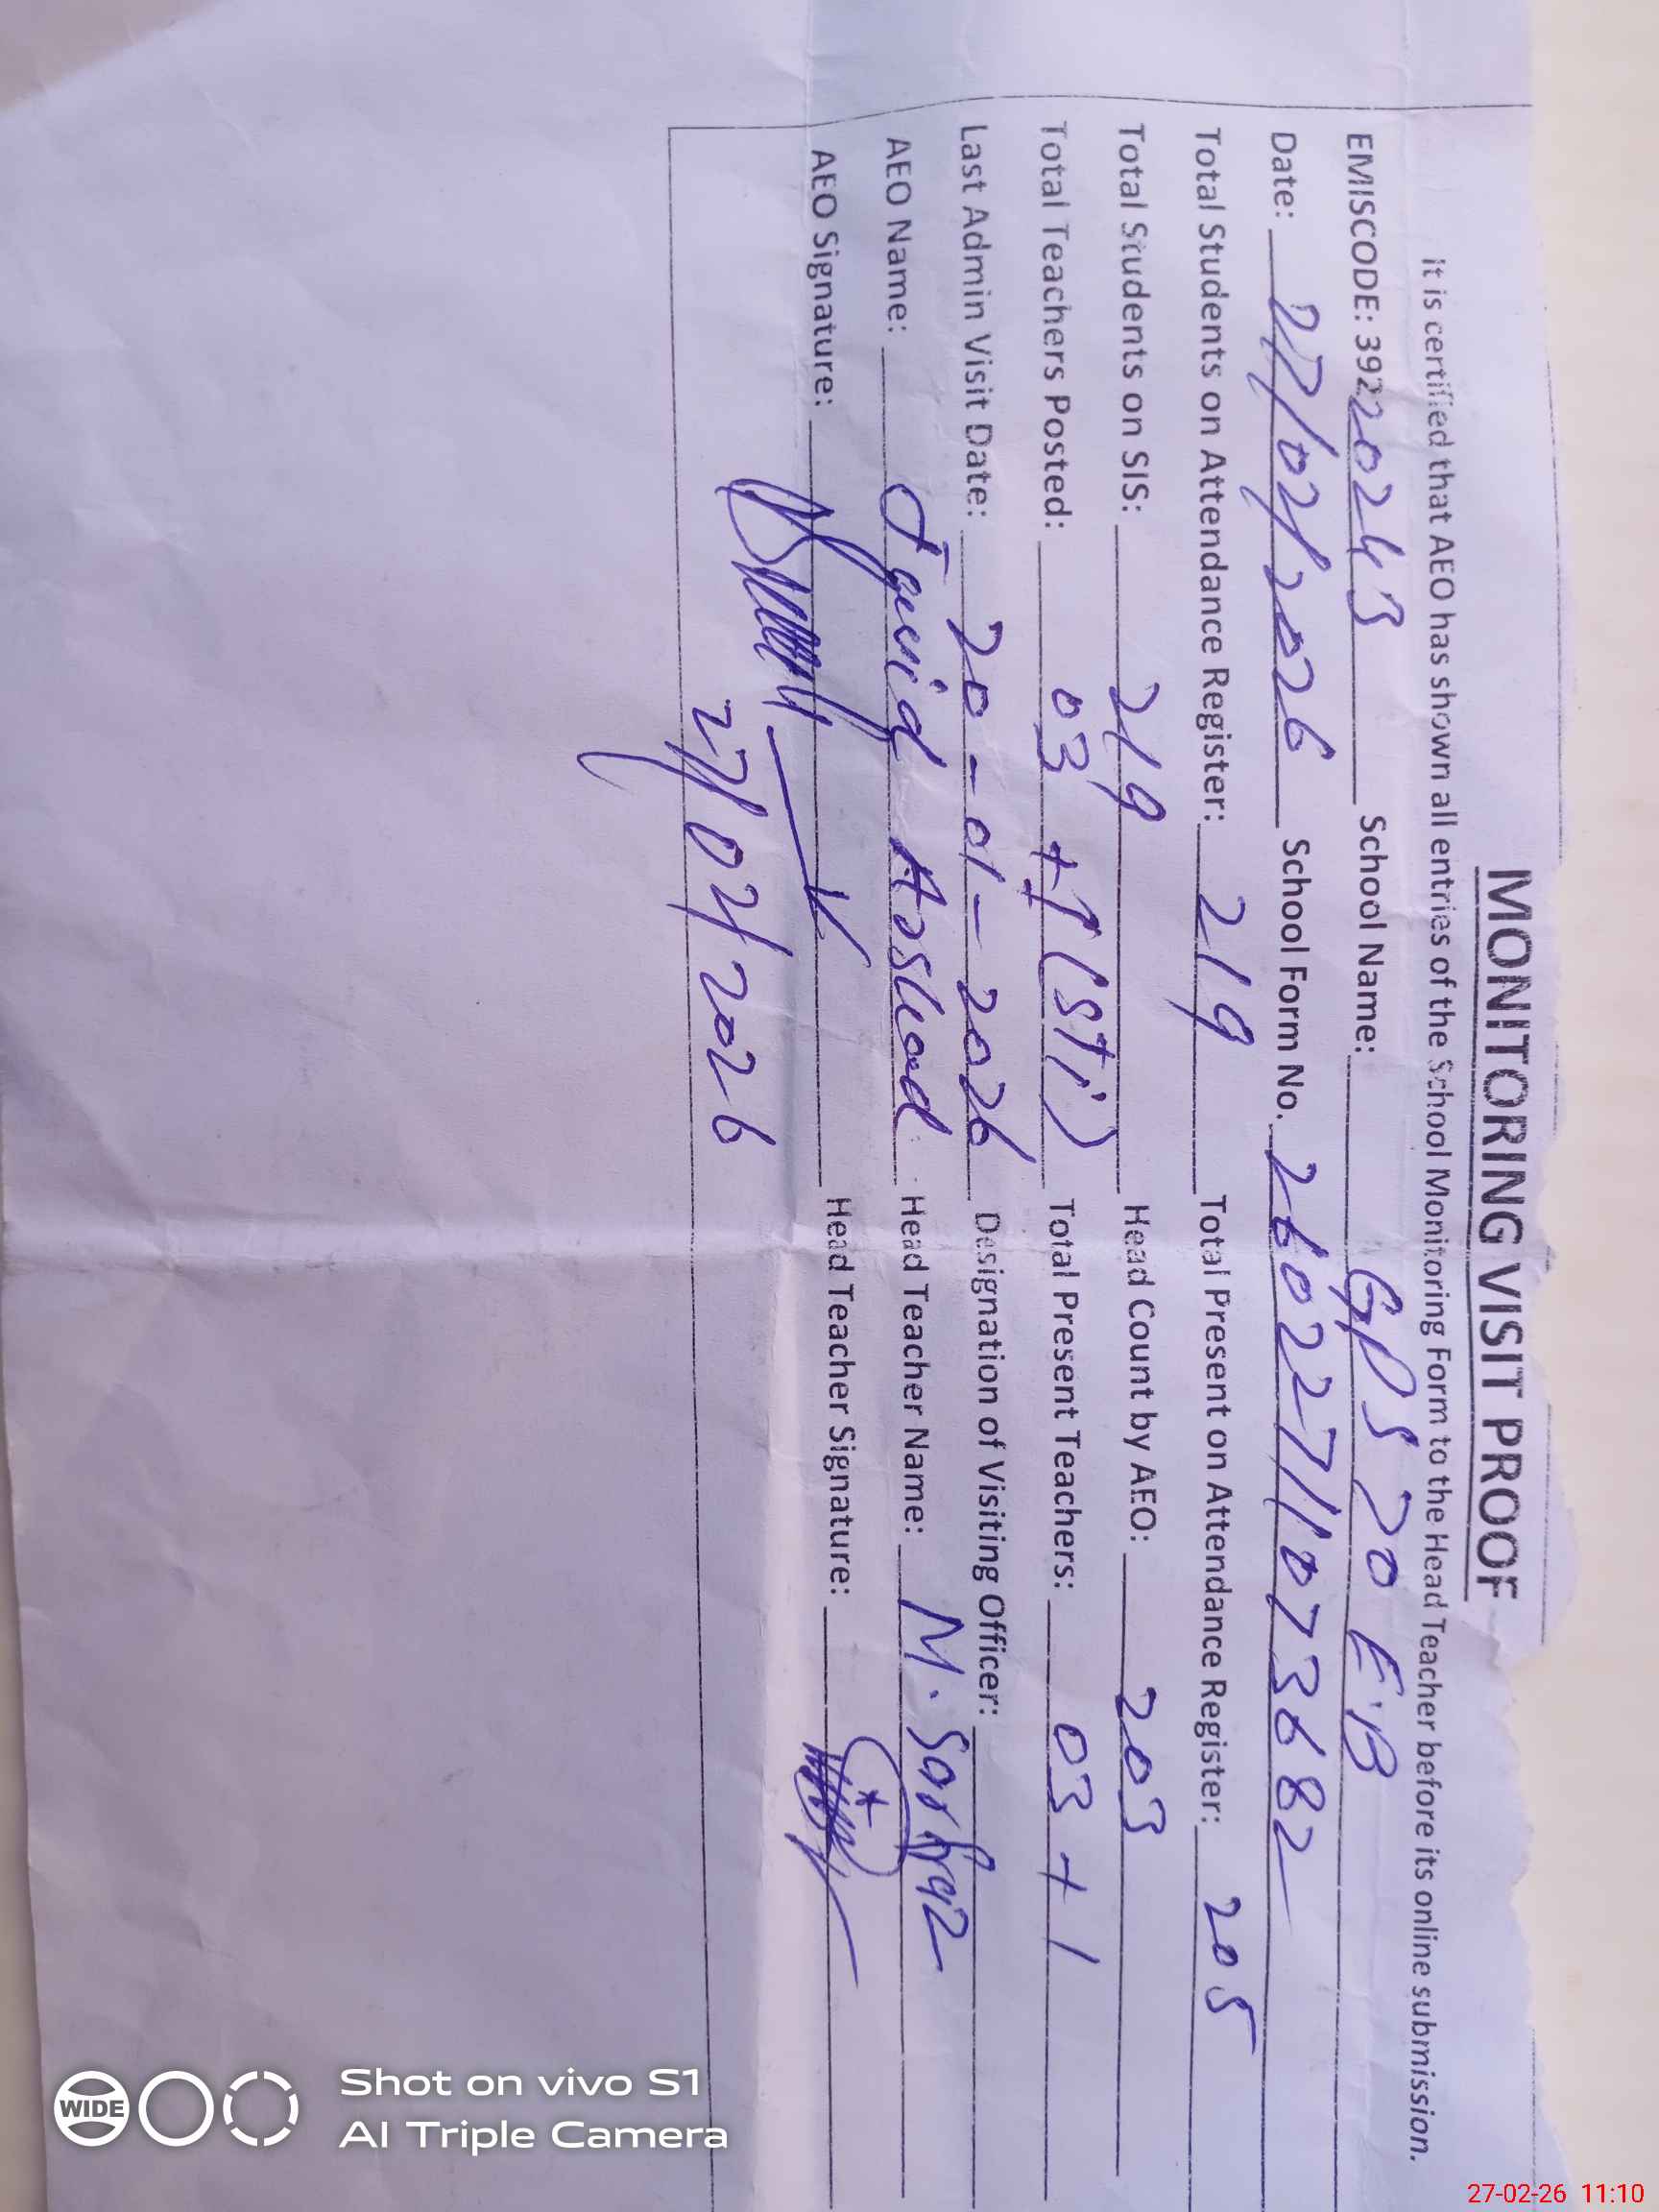 MONITORING VISIT PROOF
it is certified that AEO has shown all entries of the School Monitoring Form to the Head Teacher before its online submission.
EMISCODE: 39220243 School Name: GPS 70 E.B
Date: 27/02/2026 School Form No. 26022711073682
Total Students on Attendance Register: 219 Total Present on Attendance Register: 205
Total Students on SIS: 219 Head Count by AEO: 203
Total Teachers Posted: 03 + 1 (sti) Total Present Teachers: 03 + 1
Last Admin Visit Date: 20-01-2026 Designation of Visiting Officer:
AEO Name: Javid Head Teacher Name: M. Sarfraz
AEO Signature: Head Teacher Signature:
27/02/2026
WIDE
Shot on vivo S1
AI Triple Camera
27-02-26 11:10